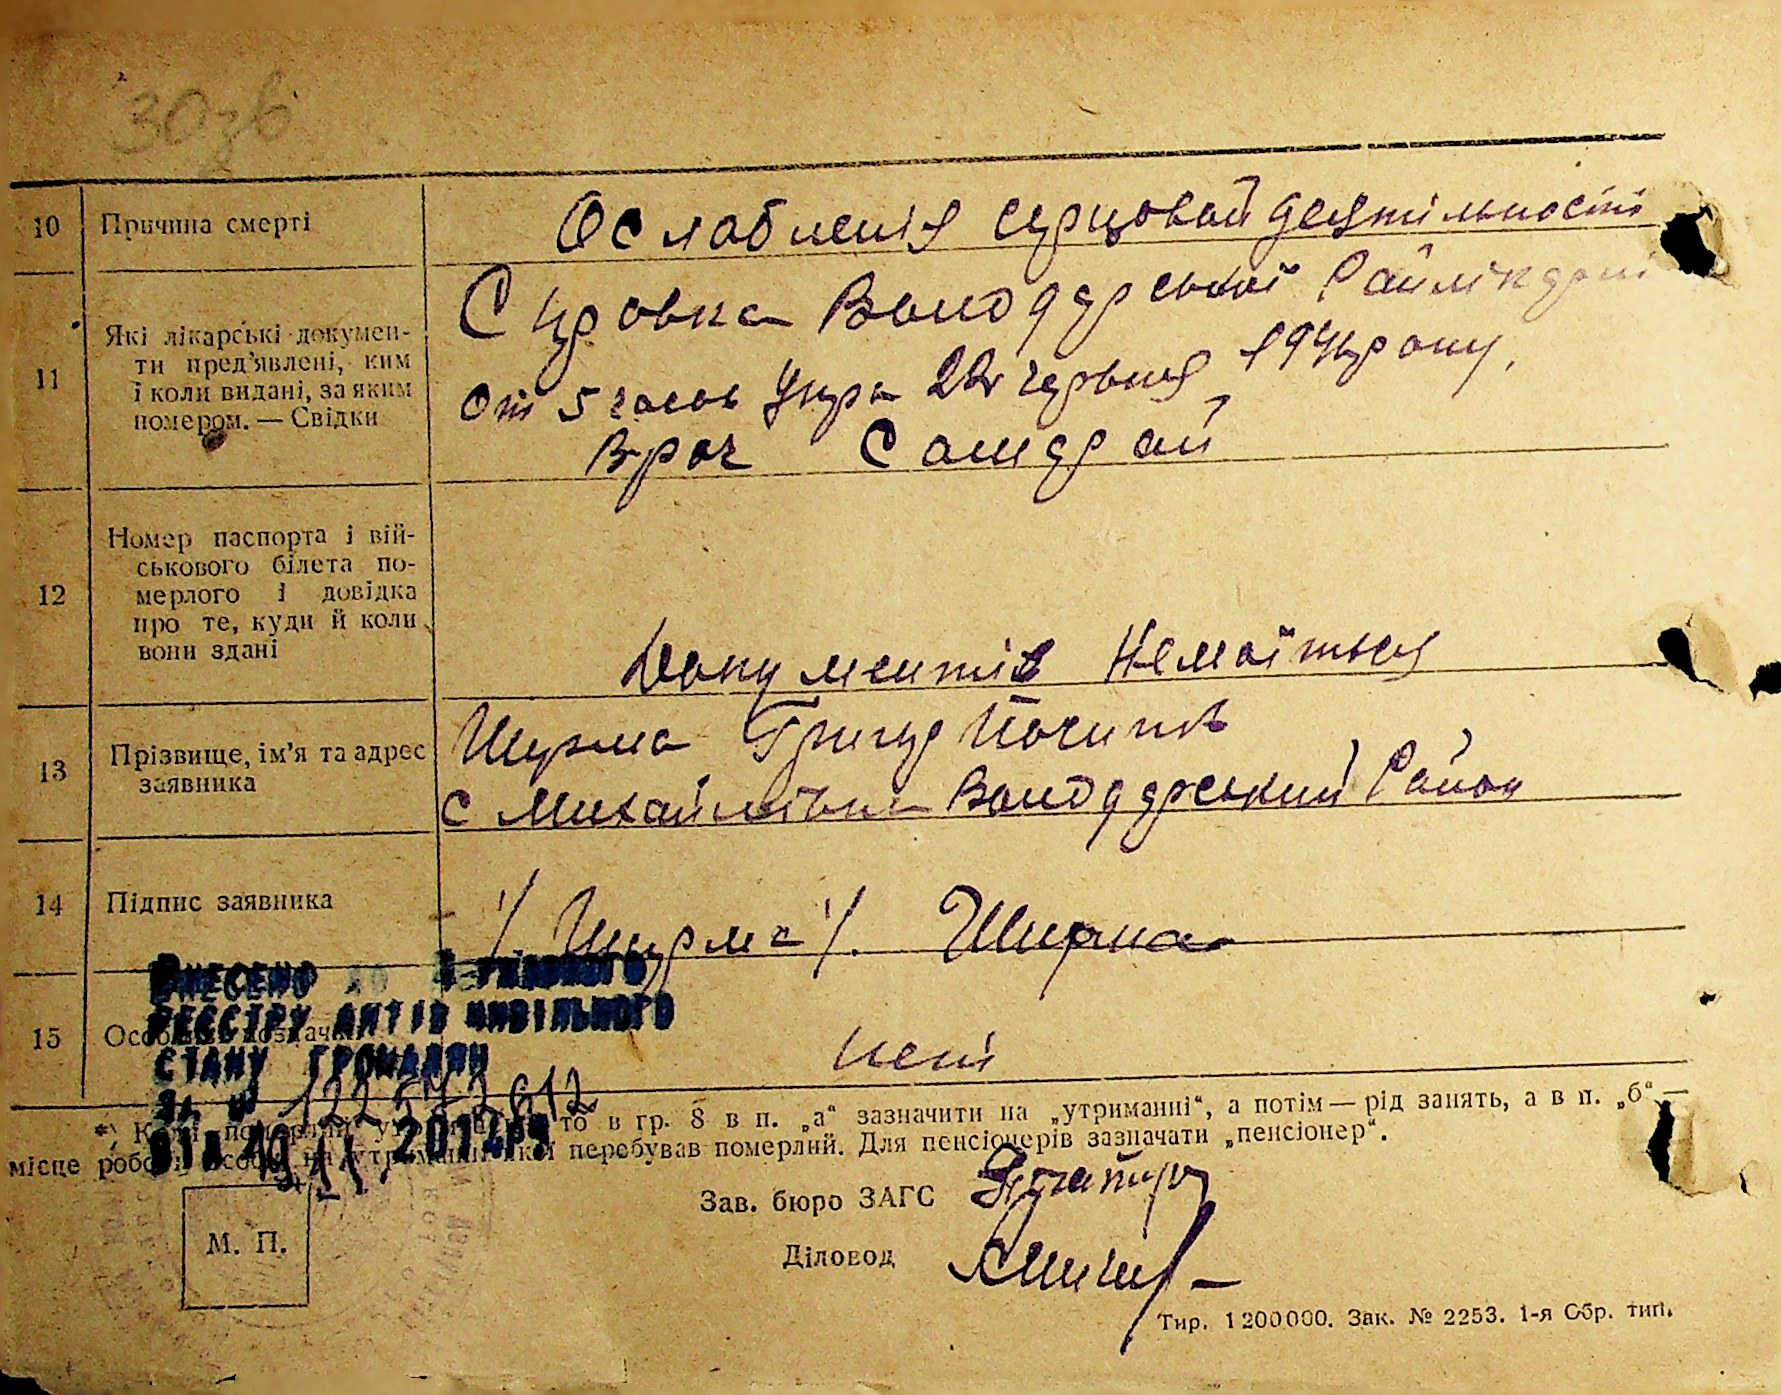 10 Причина смерті Ослабленія серцовой деятільності
11 Які лікарські докумен-
ти пред'явлені, ким
і коли видані, за яким
номером. — Свідки
Справка Володарської Райлікарні
От 5 часов Утра 22 червня року,
Врач
12 Номер паспорта і вій-
ськового білета по-
мерлого і довідка
про те, куди й коли
вони здані
Документів Немаїться
13 Прізвище, ім'я та адрес
заявника
Ширма Григор
с Михайлівка Володарський Район
14 Підпис заявника /Ширма/. Ширма
ВНЕСЕНО ДО ДЕРЖАВНОГО
РЕЄСТРУ АКТІВ ЦИВІЛЬНОГО
15 Особливі зазначки неті
СТАНУ ГРОМАДЯН
ЗА №
*) Коли померлий то в гр. 8 в п. „а“ зазначити на „утриманні“, а потім — рід занять, а в п. „б“ —
місце роботи особи, на утриманні якої перебував померлий. Для пенсіонерів зазначати „пенсіонер“.
Зав. бюро ЗАГС
М. П.
Діловод
Тир. 1200000. Зак. № 2253. 1-я Обр. тип.